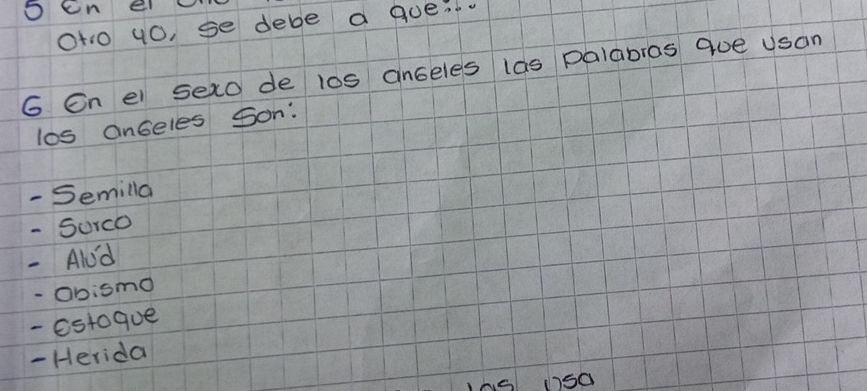 5 En el
Otro yo, se debe a que...
6 En el sexo de los angeles las palabras que usan
los angeles son:
- Semilla
- Surco
- Alúd
- Obismo
- estoque
- Herida
las usa